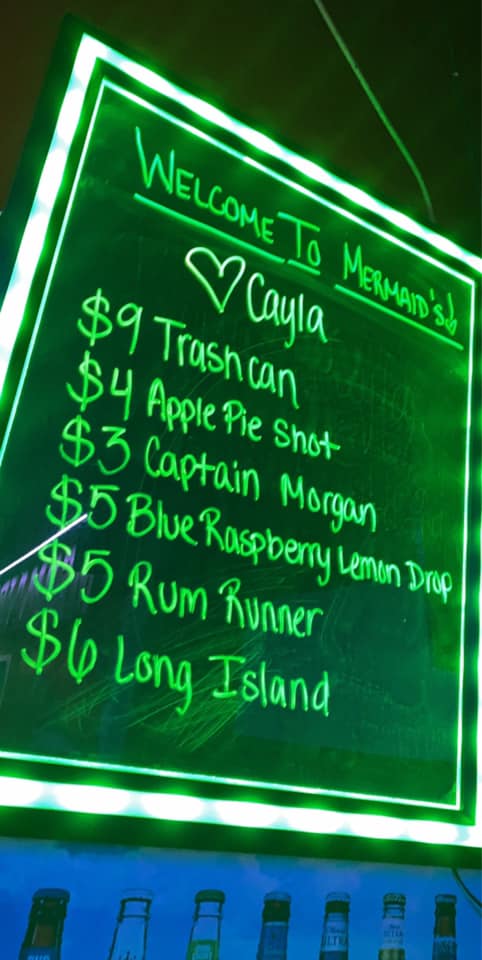 WELCOME TO MERMAID'S!
♡ Cayla
$9 Trashcan
$4 Apple Pie Shot
$3 Captain Morgan
$5 Blue Raspberry Lemon Drop
$5 Rum Runner
$6 Long Island
ULTRA